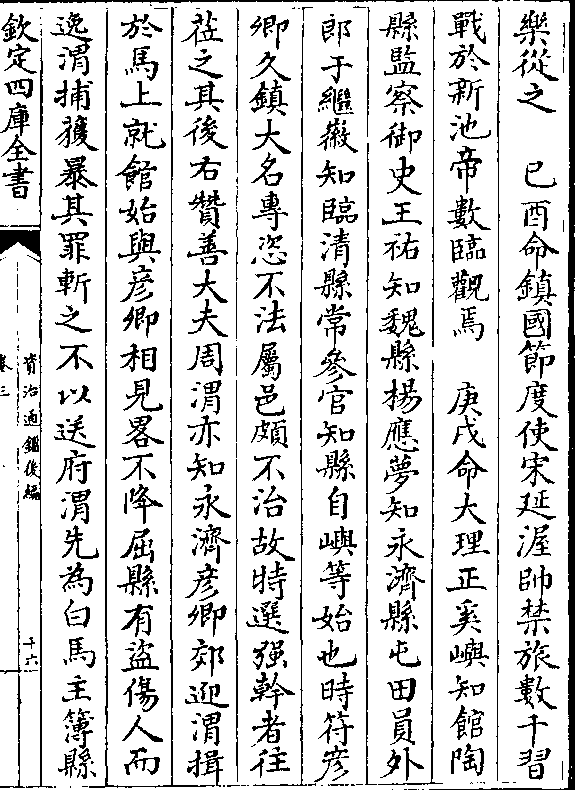 樂從之　己酉命鎮國節度使宋延渥帥禁旅數千習
戰於新池帝數臨觀焉　庚戌命大理正奚嶼知館陶
縣監察御史王祐知魏縣楊應夢知永濟縣屯田員外
郎于繼徽知臨清縣常參官知縣自嶼等始也時符彦
卿久鎮大名專恣不法屬邑頗不治故特選强幹者往
莅之其後右贊善大夫周渭亦知永濟彦卿郊迎渭揖
於馬上就館始與彦卿相見畧不降屈縣有盜傷人而
逸渭捕獲暴其罪斬之不以送府渭先為白馬主簿縣
欽定四庫全書
資治通鑑後編
卷三
十六